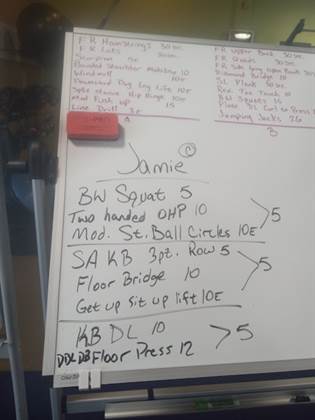 FR Hamstrings 30 sec.
FR Lats 30 sec.
Scorpion 5e
Banded Shoulder Mobility 10
Windmill 10E
Downward Dog Leg Lifts 10E
Split stance Hip Hinge 10E
Mod Push up 15
Line Drill 3e
FR Upper Back 30 sec.
FR Quads 30 sec.
FR Side lying upper Back 30 sec
Diamond Bridge 10
SL Plank 30 sec
Rev. Toe Touch 10
BW Squats 15
Plate DL Curl to Press
Jumping Jacks 26
B
Jamie
BW Squat 5
Two handed OHP 10 >5
Mod. St. Ball Circles 10E
SA KB 3pt. Row 5
Floor Bridge 10 >5
Get up sit up lift 10E
KB DL 10 >5
DB Floor Press 12